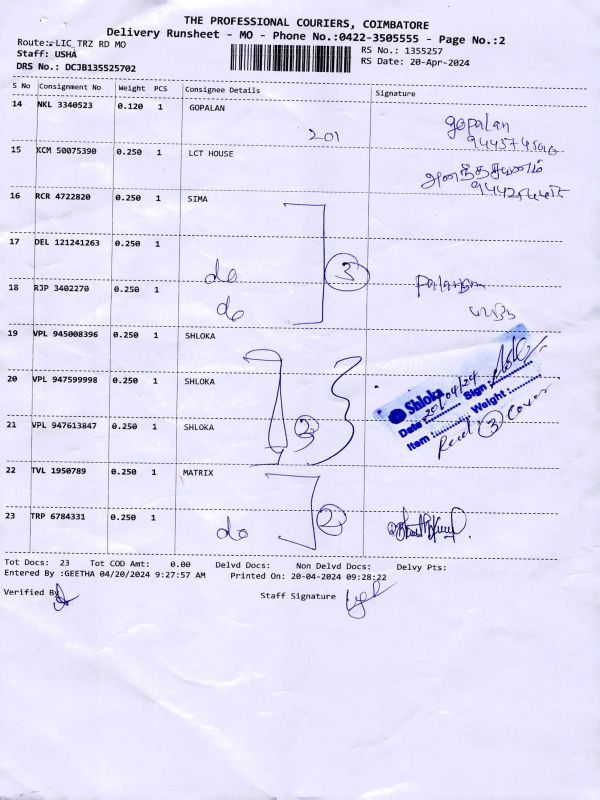 THE PROFESSIONAL COURIERS, COIMBATORE
Delivery Runsheet - MO - Phone No.:0422-3505555 - Page No.:2
Route:-LIC TRZ RD MO
RS No.: 1355257
Staff: USHA
RS Date: 20-Apr-2024
DRS No.: DCJB135525702
S No Consignment No Weight PCS Consignee Details Signature
14 NKL 3340523 0.120 1 GOPALAN
201 gopalan
15 KCM 50075390 0.250 1 LCT HOUSE
16 RCR 4722820 0.250 1 SIMA
17 DEL 121241263 0.250 1
do 3
18 RJP 3402270 0.250 1
do
19 VPL 945008396 0.250 1 SHLOKA
20 VPL 947599998 0.250 1 SHLOKA
Shloka
Date : 20/04/24 Sign :
Item : Weight :
Recd 3 Cover
21 VPL 947613847 0.250 1 SHLOKA
3
22 TVL 1950789 0.250 1 MATRIX
23 TRP 6784331 0.250 1
do 2
Tot Docs: 23 Tot COD Amt: 0.00 Delvd Docs: Non Delvd Docs: Delvy Pts:
Entered By :GEETHA 04/20/2024 9:27:57 AM Printed On: 20-04-2024 09:28:22
Verified By
Staff Signature